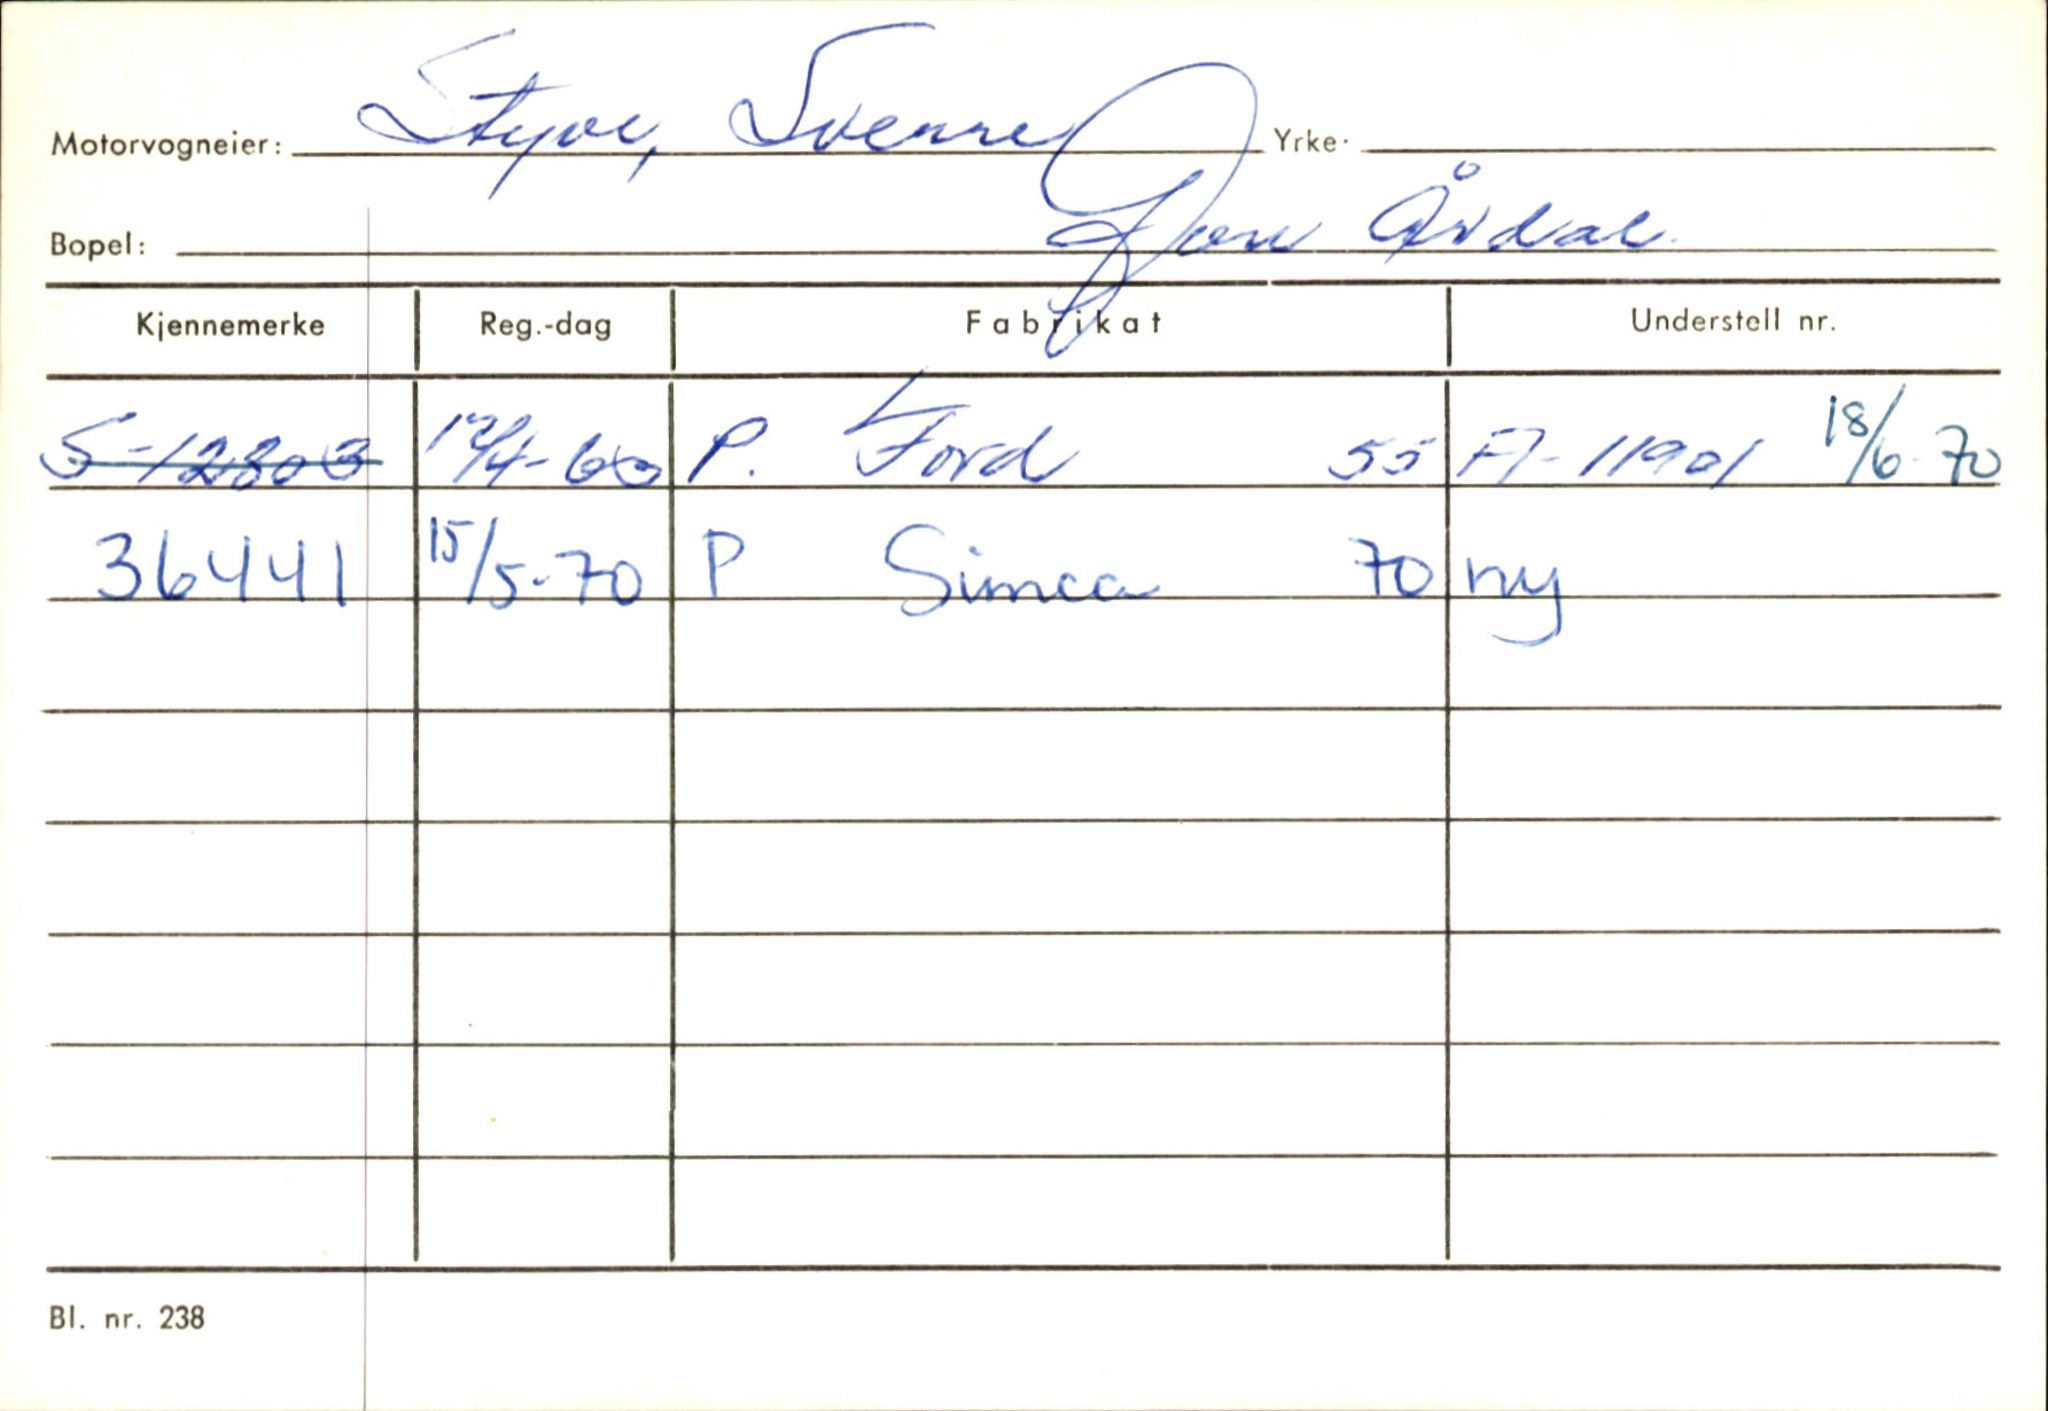 Motorvogneier: Styve, Sverre Yrke.
Bopel: Årdal.
Kjennemerke Reg.-dag Fabrikat Understell nr.
S-12803 12/4-60 P. Ford 55 F7-11901 18/6-70
36441 15/5-70 P Simca 70 ny
Bl. nr. 238